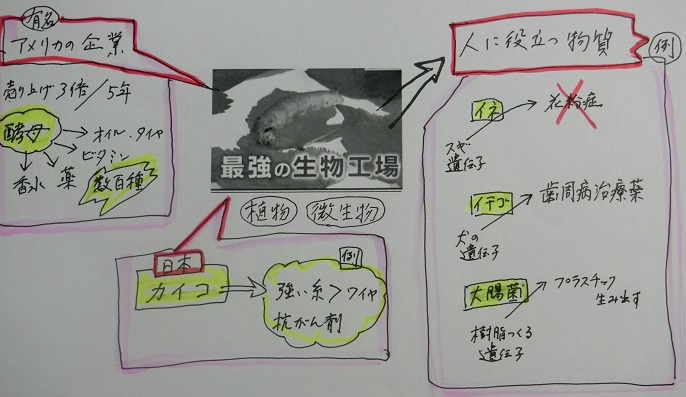 有名
アメリカの企業
売り上げ3倍/5年
酵母
オイル・タイヤ
ビタミン
香水 薬 数百種
最強の生物工場
植物 微生物
日本
カイコ
例
強い糸>ワイヤ
抗がん剤
人に役立つ物質
例
イネ
花粉症
スギ
遺伝子
イチゴ
歯周病治療薬
犬の
遺伝子
大腸菌
プラスチック
生み出す
樹脂つくる
遺伝子